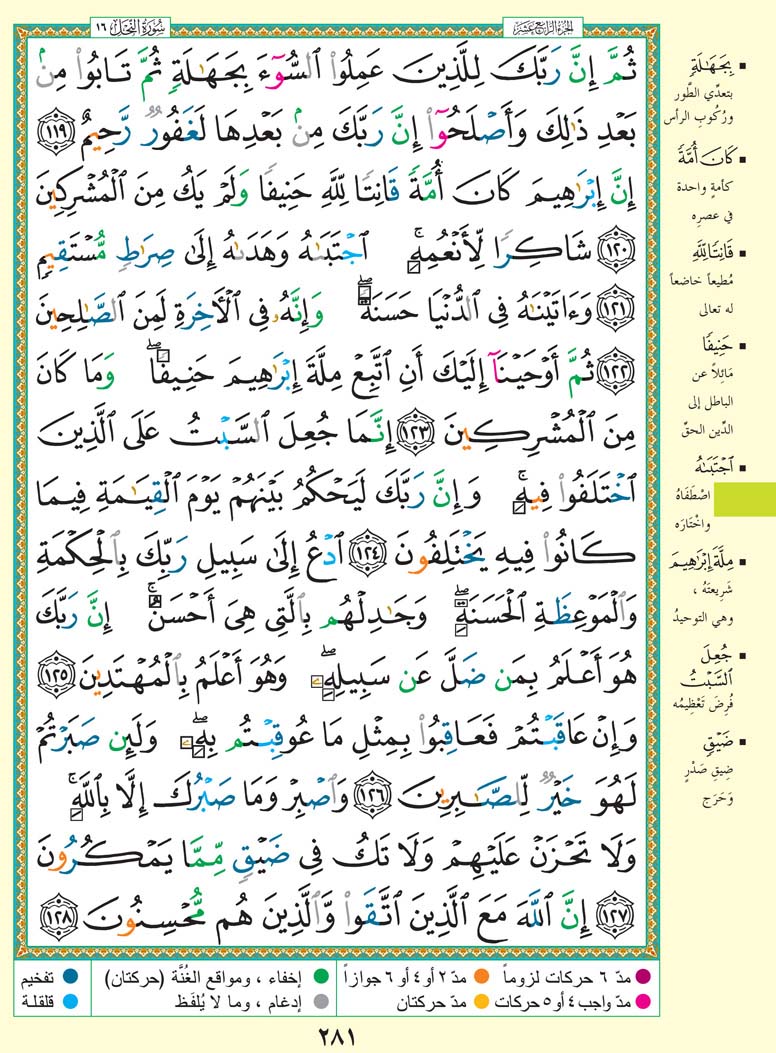 الجزء الرابع عشر
سورة النحل ١٦
ثُمَّ إِنَّ رَبَّكَ لِلَّذِينَ عَمِلُوا۟ ٱلسُّوٓءَ بِجَهَـٰلَةٍ ثُمَّ تَابُوا۟ مِنۢ
بَعْدِ ذَٰلِكَ وَأَصْلَحُوٓا۟ إِنَّ رَبَّكَ مِنۢ بَعْدِهَا لَغَفُورٌ رَّحِيمٌ ١١٩
إِنَّ إِبْرَٰهِيمَ كَانَ أُمَّةً قَانِتًا لِّلَّهِ حَنِيفًا وَلَمْ يَكُ مِنَ ٱلْمُشْرِكِينَ
١٢٠ شَاكِرًا لِّأَنْعُمِهِ ۚ ٱجْتَبَىٰهُ وَهَدَىٰهُ إِلَىٰ صِرَٰطٍ مُّسْتَقِيمٍ
١٢١ وَءَاتَيْنَـٰهُ فِى ٱلدُّنْيَا حَسَنَةً ۖ وَإِنَّهُۥ فِى ٱلْـَٔاخِرَةِ لَمِنَ ٱلصَّـٰلِحِينَ
١٢٢ ثُمَّ أَوْحَيْنَآ إِلَيْكَ أَنِ ٱتَّبِعْ مِلَّةَ إِبْرَٰهِيمَ حَنِيفًا ۖ وَمَا كَانَ
مِنَ ٱلْمُشْرِكِينَ ١٢٣ إِنَّمَا جُعِلَ ٱلسَّبْتُ عَلَى ٱلَّذِينَ
ٱخْتَلَفُوا۟ فِيهِ ۚ وَإِنَّ رَبَّكَ لَيَحْكُمُ بَيْنَهُمْ يَوْمَ ٱلْقِيَـٰمَةِ فِيمَا
كَانُوا۟ فِيهِ يَخْتَلِفُونَ ١٢٤ ٱدْعُ إِلَىٰ سَبِيلِ رَبِّكَ بِٱلْحِكْمَةِ
وَٱلْمَوْعِظَةِ ٱلْحَسَنَةِ ۖ وَجَـٰدِلْهُم بِٱلَّتِى هِىَ أَحْسَنُ ۚ إِنَّ رَبَّكَ
هُوَ أَعْلَمُ بِمَن ضَلَّ عَن سَبِيلِهِۦ ۖ وَهُوَ أَعْلَمُ بِٱلْمُهْتَدِينَ ١٢٥
وَإِنْ عَاقَبْتُمْ فَعَاقِبُوا۟ بِمِثْلِ مَا عُوقِبْتُم بِهِۦ ۖ وَلَئِن صَبَرْتُمْ
لَهُوَ خَيْرٌ لِّلصَّـٰبِرِينَ ١٢٦ وَٱصْبِرْ وَمَا صَبْرُكَ إِلَّا بِٱللَّهِ ۚ
وَلَا تَحْزَنْ عَلَيْهِمْ وَلَا تَكُ فِى ضَيْقٍ مِّمَّا يَمْكُرُونَ
١٢٧ إِنَّ ٱللَّهَ مَعَ ٱلَّذِينَ ٱتَّقَوا۟ وَّٱلَّذِينَ هُم مُّحْسِنُونَ ١٢٨
▪ بِجَهَـٰلَةٍ
بتعدِّي الطَّور
ورُكُوبِ الرأس
▪ كَانَ أُمَّةً
كأمةٍ واحدة
في عصرِه
▪ قَانِتًا لِلَّهِ
مُطيعاً خاضعاً
له تعالى
▪ حَنِيفًا
مَائِلاً عن
الباطل إلى
الدِّين الحقّ
▪ ٱجْتَبَىٰهُ
اصْطَفَاهُ
واخْتَارَه
▪ مِلَّةَ إِبْرَٰهِيمَ
شَرِيعَتَهُ ،
وهي التوحيدُ
▪ جُعِلَ
ٱلسَّبْتُ
فُرِضَ تَعْظِيمُه
▪ ضَيْقٍ
ضِيقِ صَدْرٍ
وَحَرَج
مدّ ٦ حركات لزوماً
مدّ ٢ أو ٤ أو ٦ جوازاً
إخفاء ، ومواقع الغُنَّة (حركتان)
تفخيم
مدّ واجب ٤ أو ٥ حركات
مدّ حركتان
إدغام ، وما لا يُلفَظ
قلقلة
٢٨١